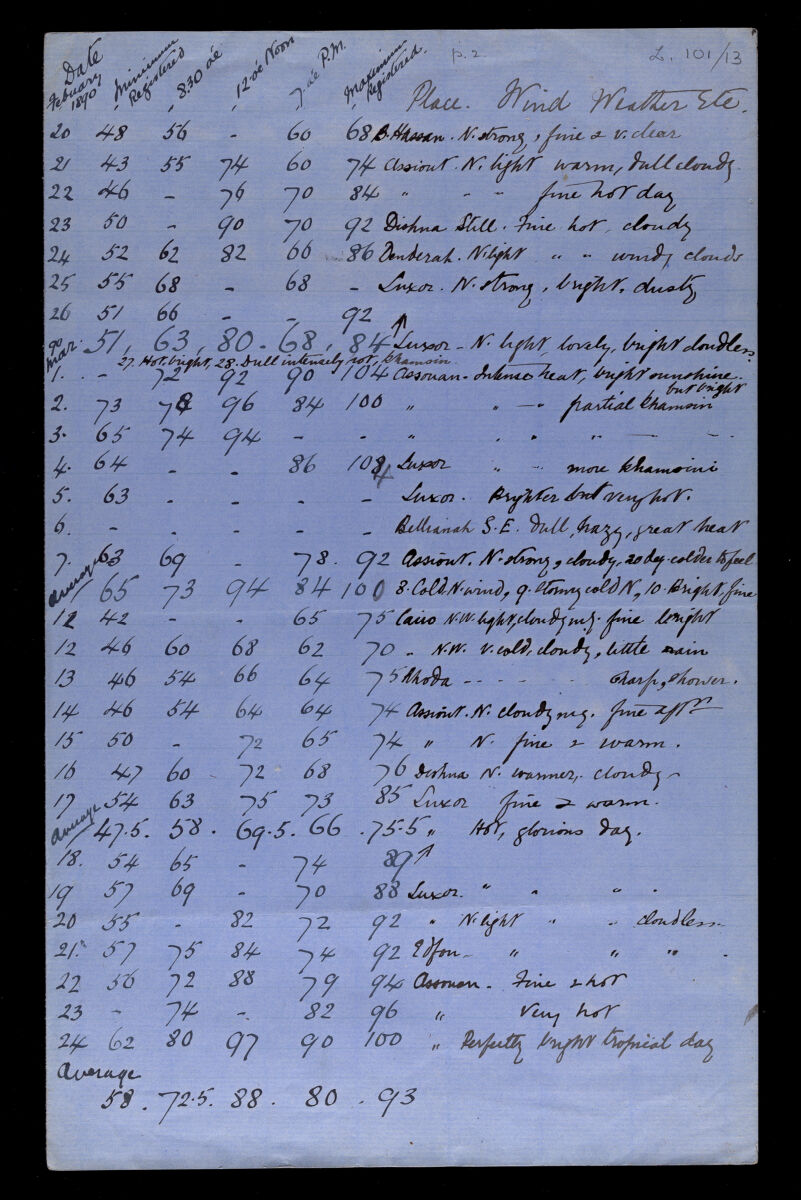 p.2 L. 101/13
Date Febuary 1890 Minimum Registered 8.30 o'c 12 o'c Noon 7 o'c P.M. Maximum Registered. Place. Wind Weather Etc.
20 48 56 - 60 68 B. Hassan. N. strong, fine & v. clear
21 43 55 74 60 74 Assiout. N. light warm, dull cloudy.
22 46 - 76 70 84 " - " fine hot day
23 50 - 90 70 92 Dishna Still. Fine hot, cloudy
24 52 62 82 66 86 Denderah. N. light " " windy clouds
25 55 68 - 68 - Luxor. N. strong, bright, dusty
26 51 66 - - 92
51, 63, 80. 68, 84 Luxor - N. light, lovely, bright cloudless
27. Hot, bright, 28. Dull intensely hot, khamsin
Mar.
1. - 72 92 90 104 Assouan - Intense heat, bright sunshine.
but bright
2. 73 78 96 84 100 " " - partial khamsin
3. 65 74 94 - - " " " " - -
4. 64 - - 86 104 Luxor " - more khamsini
5. 63 - - - - Luxor. Brighter but very hot.
6. - - - - - Bellianah S.E. dull, hazy, great heat
7. 63 69 - 78. 92 Assiout. N. strong, cloudy, 20 deg. colder to feel
average 65 73 94 84 100 8. Cold N. wind, 9. Stormy cold N, 10. Bright, fine
12 42 - - 65 75 Cairo N.W. light, cloudy mg. fine bright
12 46 60 68 62 70 - N.W. v. cold, cloudy, little rain
13 46 54 66 64 75 Rhoda - - - - sharp, shower.
14 46 54 64 64 74 Assiout. N. cloudy mg. fine aftn
15 50 - 72 65 74 " N. fine & warm.
16 47 60 72 68 76 Dishna N. warmer, cloudy -
17 54 63 75 73 85 Luxor fine & warm.
average 47.5. 58. 69.5. 66 .75.5 " Hot, glorious day.
18. 54 65 - 74 89
19 57 69 - 70 88 Luxor. " " " "
20 55 - 82 72 92 " N. light " " cloudless
21. 57 75 84 74 92 Edfou - " " " .
22 56 72 88 79 94 Assouan. Fine & hot
23 - 74 -. 82 96 " Very hot
24 62 80 97 90 100 " Perfectly bright tropical day
average
58. 72.5. 88. 80. 93